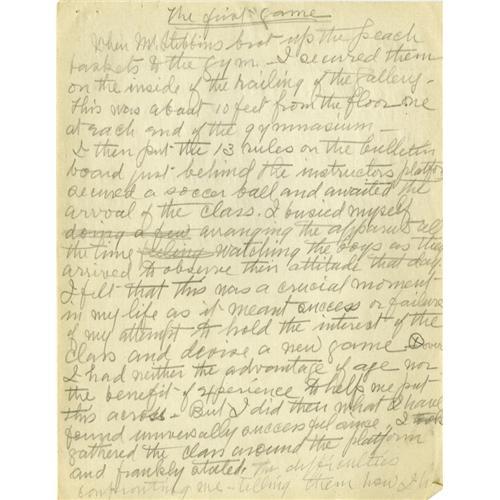 The first game
When Mr Stebbins brot up the peach
baskets to the gym - I secured them
on the inside of the railing of the gallery.
this was about 10 feet from the floor one
at each end of the gymnasium -
I then put the 13 rules on the bulletin
board just behind the instructors platform
secured a soccer ball and awaited the
arrval of the class. I busied myself
doing a few arranging the apparatus all
the time watching the boys as they
arrived to observe their attitude that day.
I felt that this was a crucial moment
in my life as it meant success or failure
of my attempt to hold the interest of the
class and devise a new game.
I had neither the advantage of age nor
the benefit of experience to help me put
this across - But I did then what I have
found universally successful since, I
gathered the class around the platform
and frankly stated the difficulties
confronting me - telling them how I